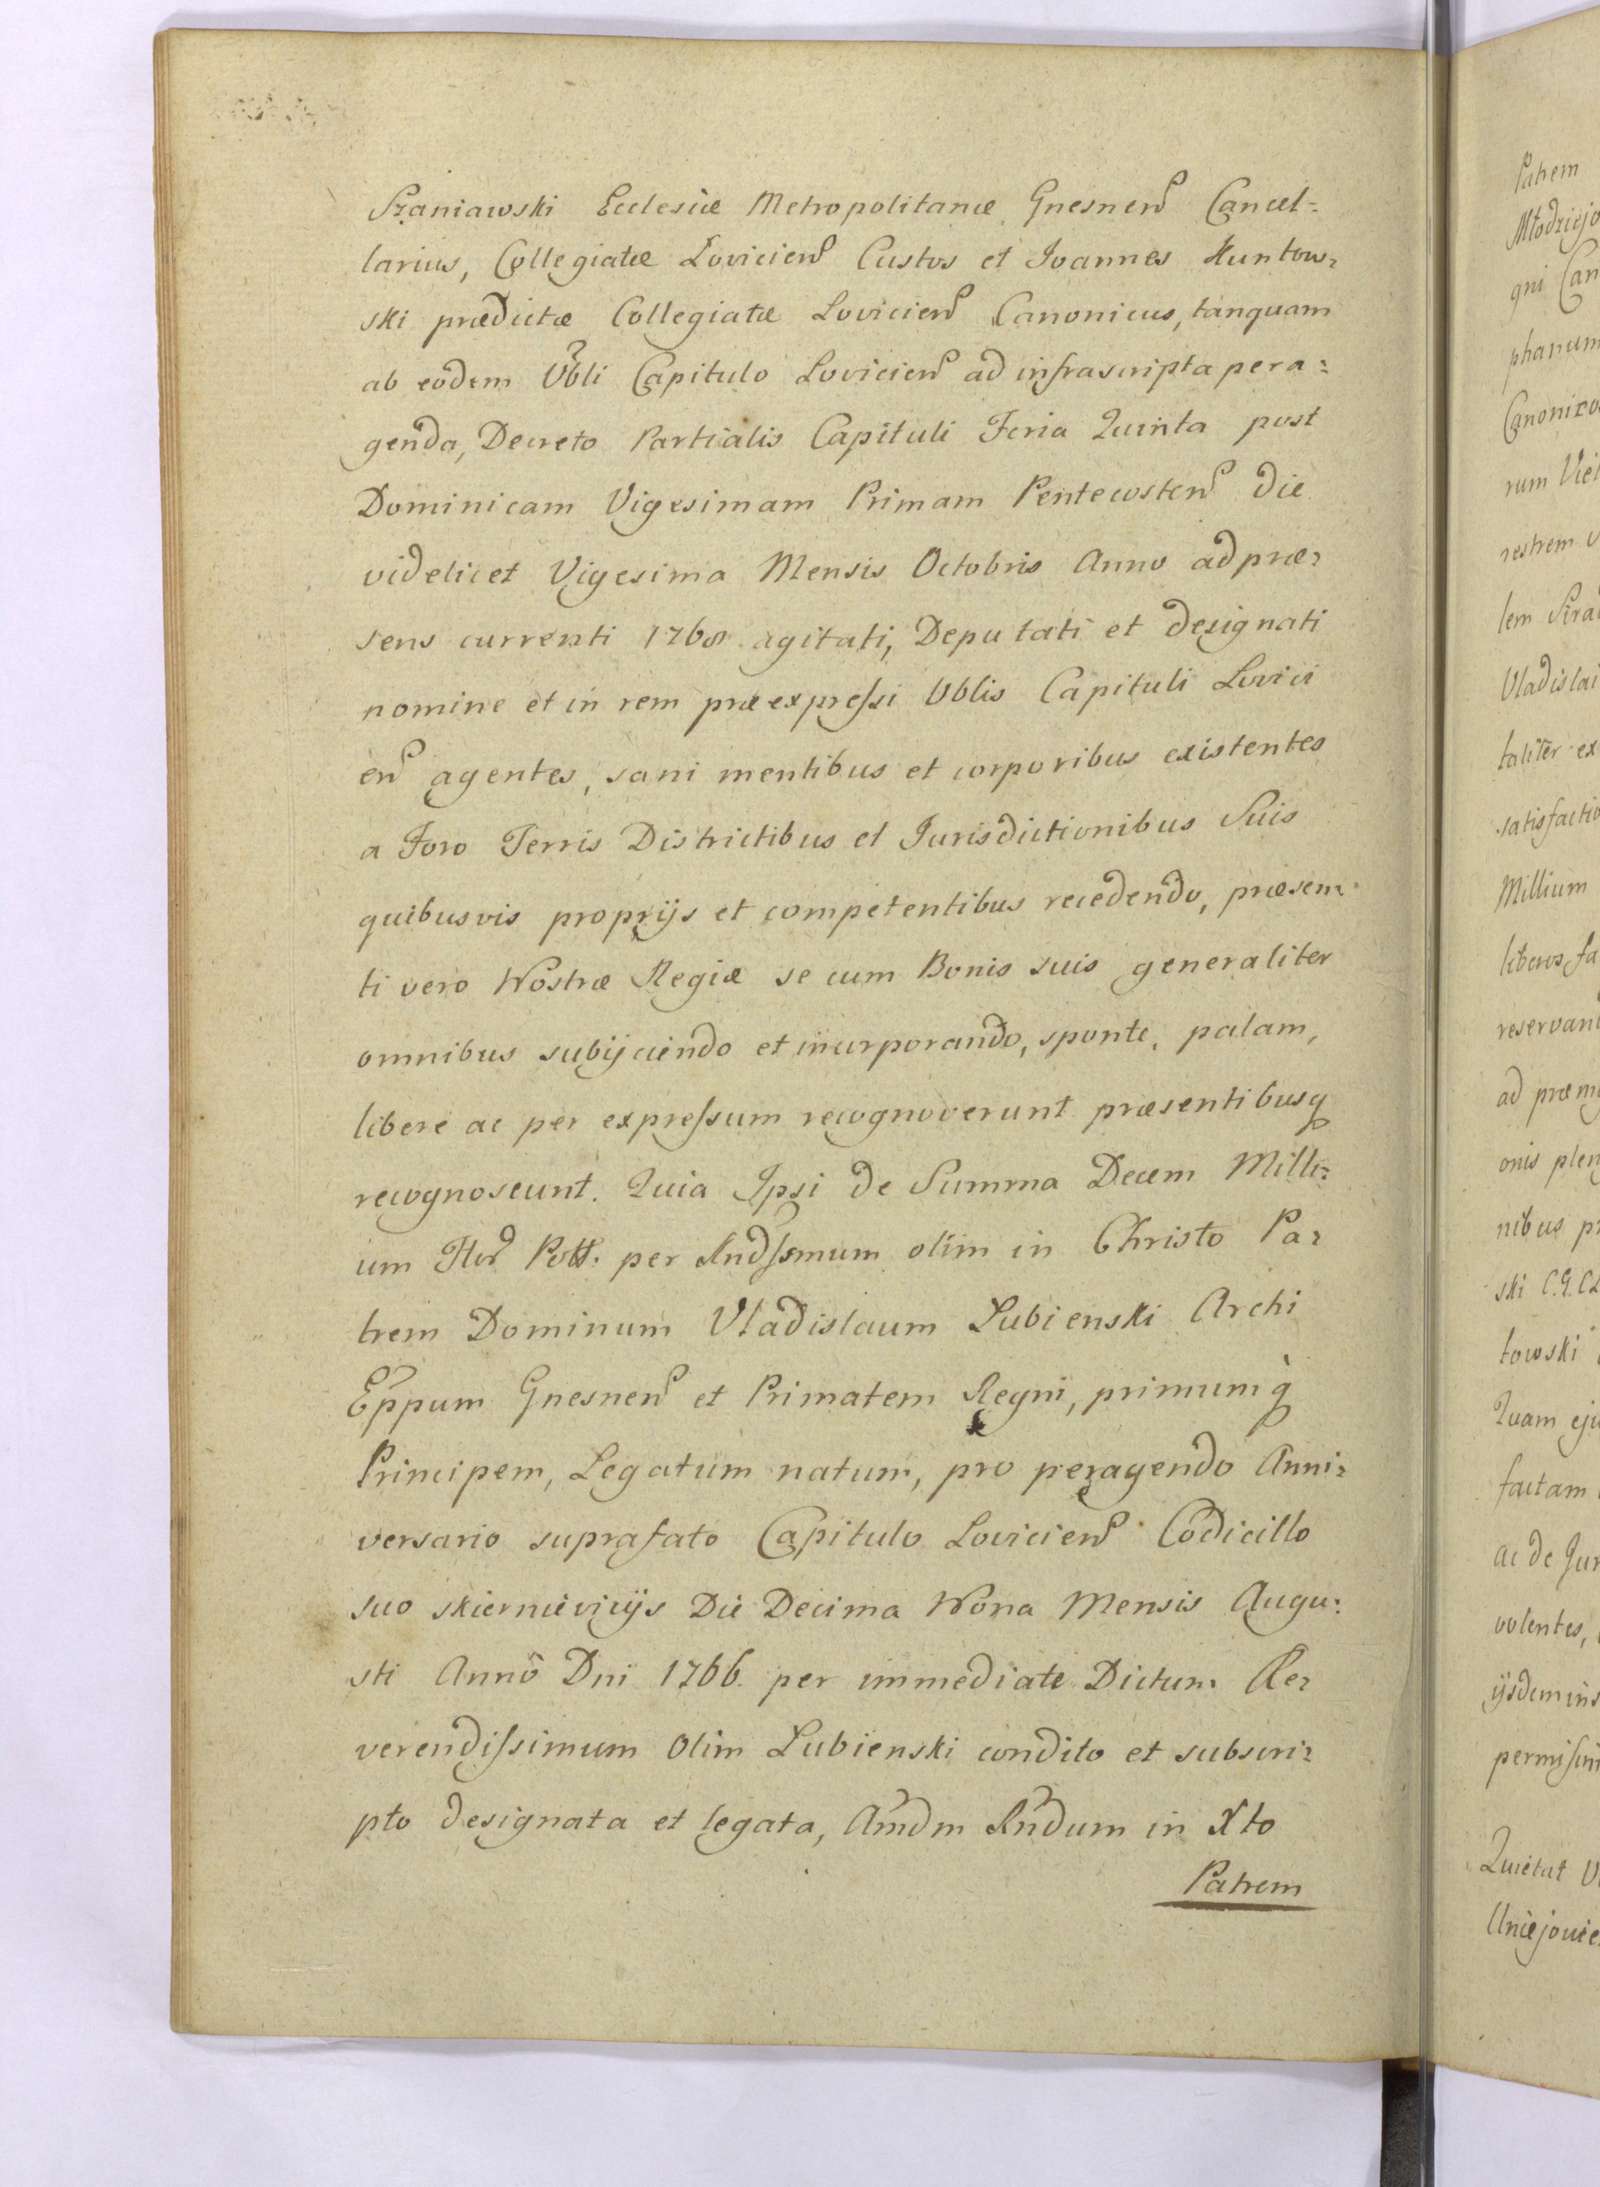 Szaniawski Ecclesiæ Metropolitanæ Gnesnen Cancel=
larius, Collegiatæ Lovicien Custos et Joannes Kuntow=
ski prædictæ Collegiatæ Lovicien Canonicus, tanquam
ab eodem Vbli Capitulo Lovicien ad infrascripta pera=
genda, Decreto Partialis Capituli Feria Quinta post
Dominicam Vigesimam Primam Pentecosten die
videlicet Vigesima Mensis Octobris Anno ad præ=
sens currenti 1768 agitati, Deputati et designati
nomine et in rem præexpreſsi Vblis Capituli Lovici
en agentes, sani mentibus et corporibus existentes
a Foro Terris Districtibus et Jurisdictionibus Suis
quibusvis proprijs et competentibus recedendo, præsen
ti vero Nostræ Regiæ se cum Bonis suis generaliter
omnibus subijciendo et incorporando, sponte, palam,
libere ac per expreſsum recognoverunt præsentibusq
recognoscunt. Quia Ipsi de Summa Decem Milli=
um Flor Poll. per Rndſsmum olim in Christo Pa=
trem Dominum Vladislaum Lubienski Archi
Eppum Gnesnen et Primatem Regni, primumq
Principem, Legatum natum, pro peragendo Anni=
versario suprafato Capitulo Lovicien Codicillo
suo Skiernieviciis Die Decima Nona Mensis Augu=
sti Anno Dni 1766. per immediate Dictum Re=
verendiſsimum olim Lubienski condito et subscri=
pto designata et legata, Amdm Rndum in Xto
Patrem
Patrem
Młodziejo
gni Can
phanum
Canonico
rum Viel
restrem v
lem Sira
Vladislai
taliter ex
satisfactio
Millium
liberos fa
reservan
ad præmi
onis plen
nibus pr
ski C.G.C
towski
Quam eju
factam
ac de Jur
volentes,
ijsdem ins
permiſsi
Quietat V
Uniejovie